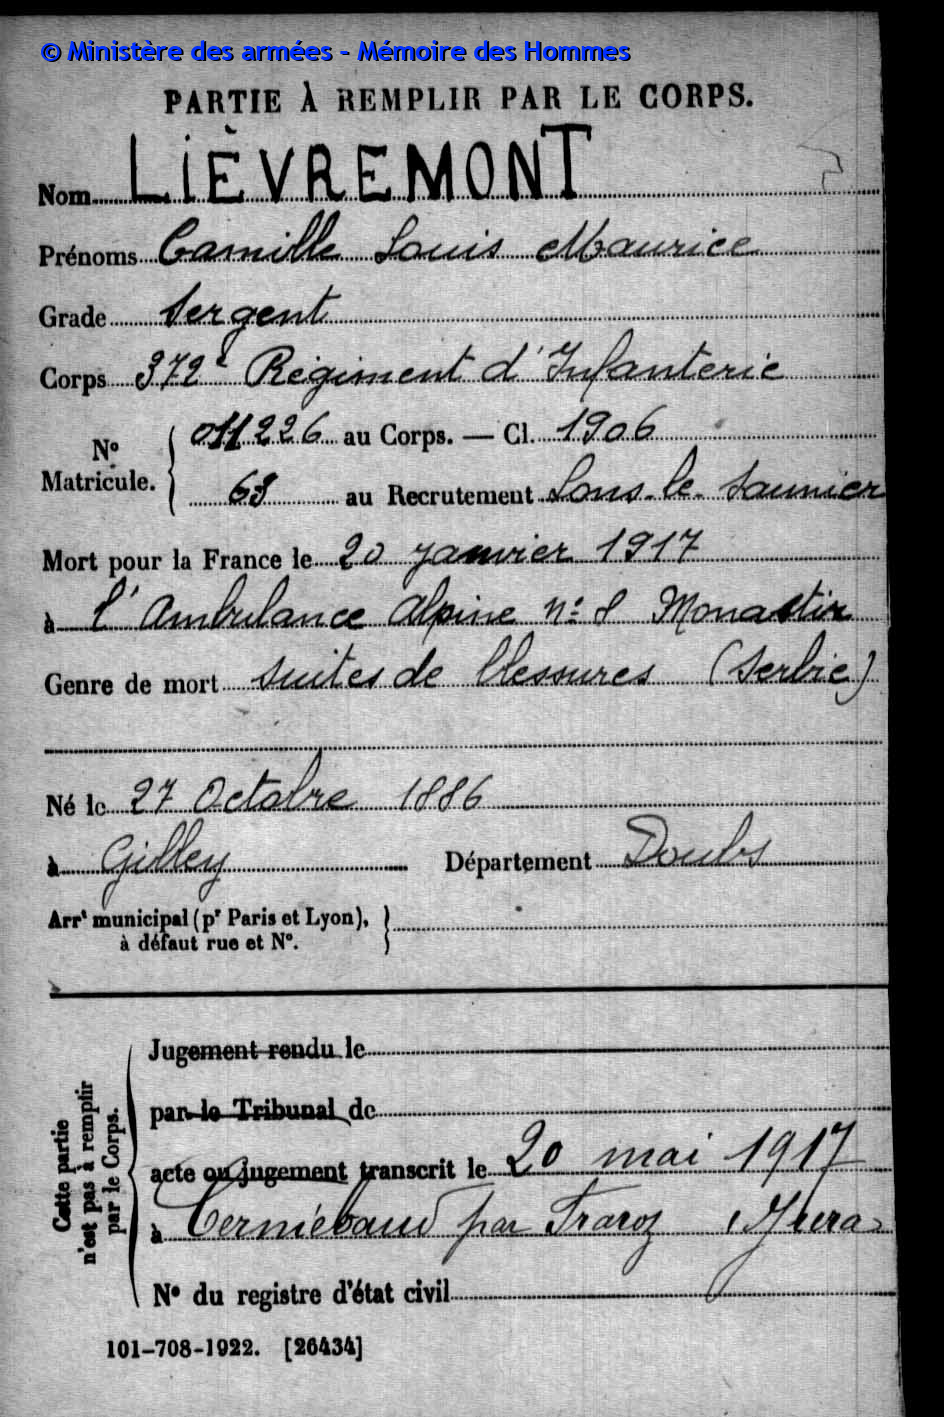 © Ministère des armées - Mémoire des Hommes
PARTIE À REMPLIR PAR LE CORPS.
Nom LIÈVREMONT
Prénoms Camille Louis Maurice
Grade Sergent
Corps 372e Régiment d'Infanterie
No Matricule. { 011226 au Corps. — Cl. 1906
63 au Recrutement Lons-le-Saunier
Mort pour la France le 20 janvier 1917
à l'Ambulance Alpine No 8 Monastir
Genre de mort suites de blessures (Serbie)
Né le 27 Octobre 1886
à Gilley Département Doubs
Arrt municipal (pr Paris et Lyon),
à défaut rue et No.
Cette partie
n'est pas à remplir
par le Corps.
Jugement rendu le
par le Tribunal de
acte ou jugement transcrit le 20 mai 1917
à Cerniébaud par Fraroz (Jura)
No du registre d'état civil
101-708-1922. [26434]